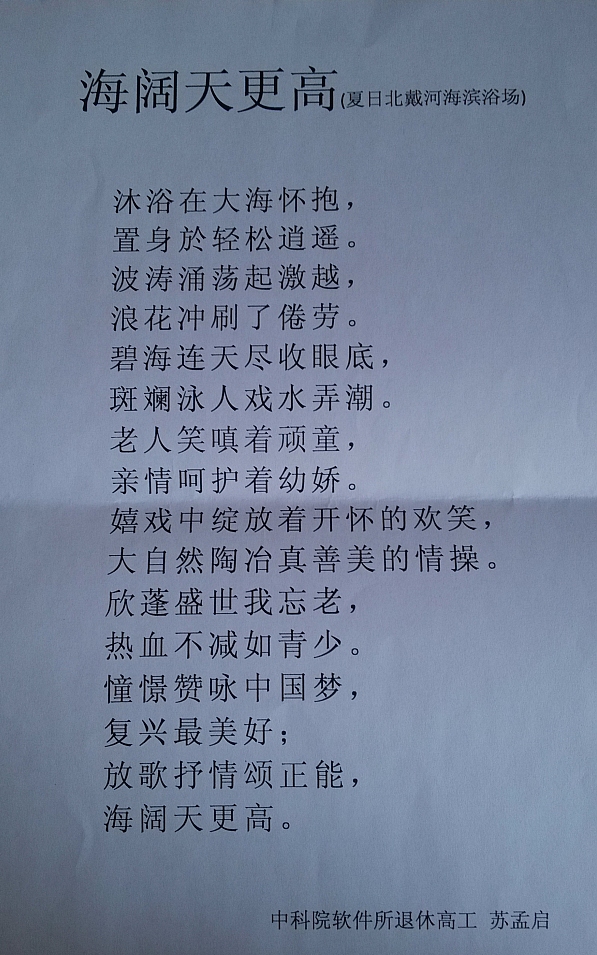 海阔天更高(夏日北戴河海滨浴场)
沐浴在大海怀抱，
置身於轻松逍遥。
波涛涌荡起激越，
浪花冲刷了倦劳。
碧海连天尽收眼底，
斑斓泳人戏水弄潮。
老人笑嗔着顽童，
亲情呵护着幼娇。
嬉戏中绽放着开怀的欢笑，
大自然陶冶真善美的情操。
欣蓬盛世我忘老，
热血不减如青少。
憧憬赞咏中国梦，
复兴最美好；
放歌抒情颂正能，
海阔天更高。
中科院软件所退休高工 苏孟启